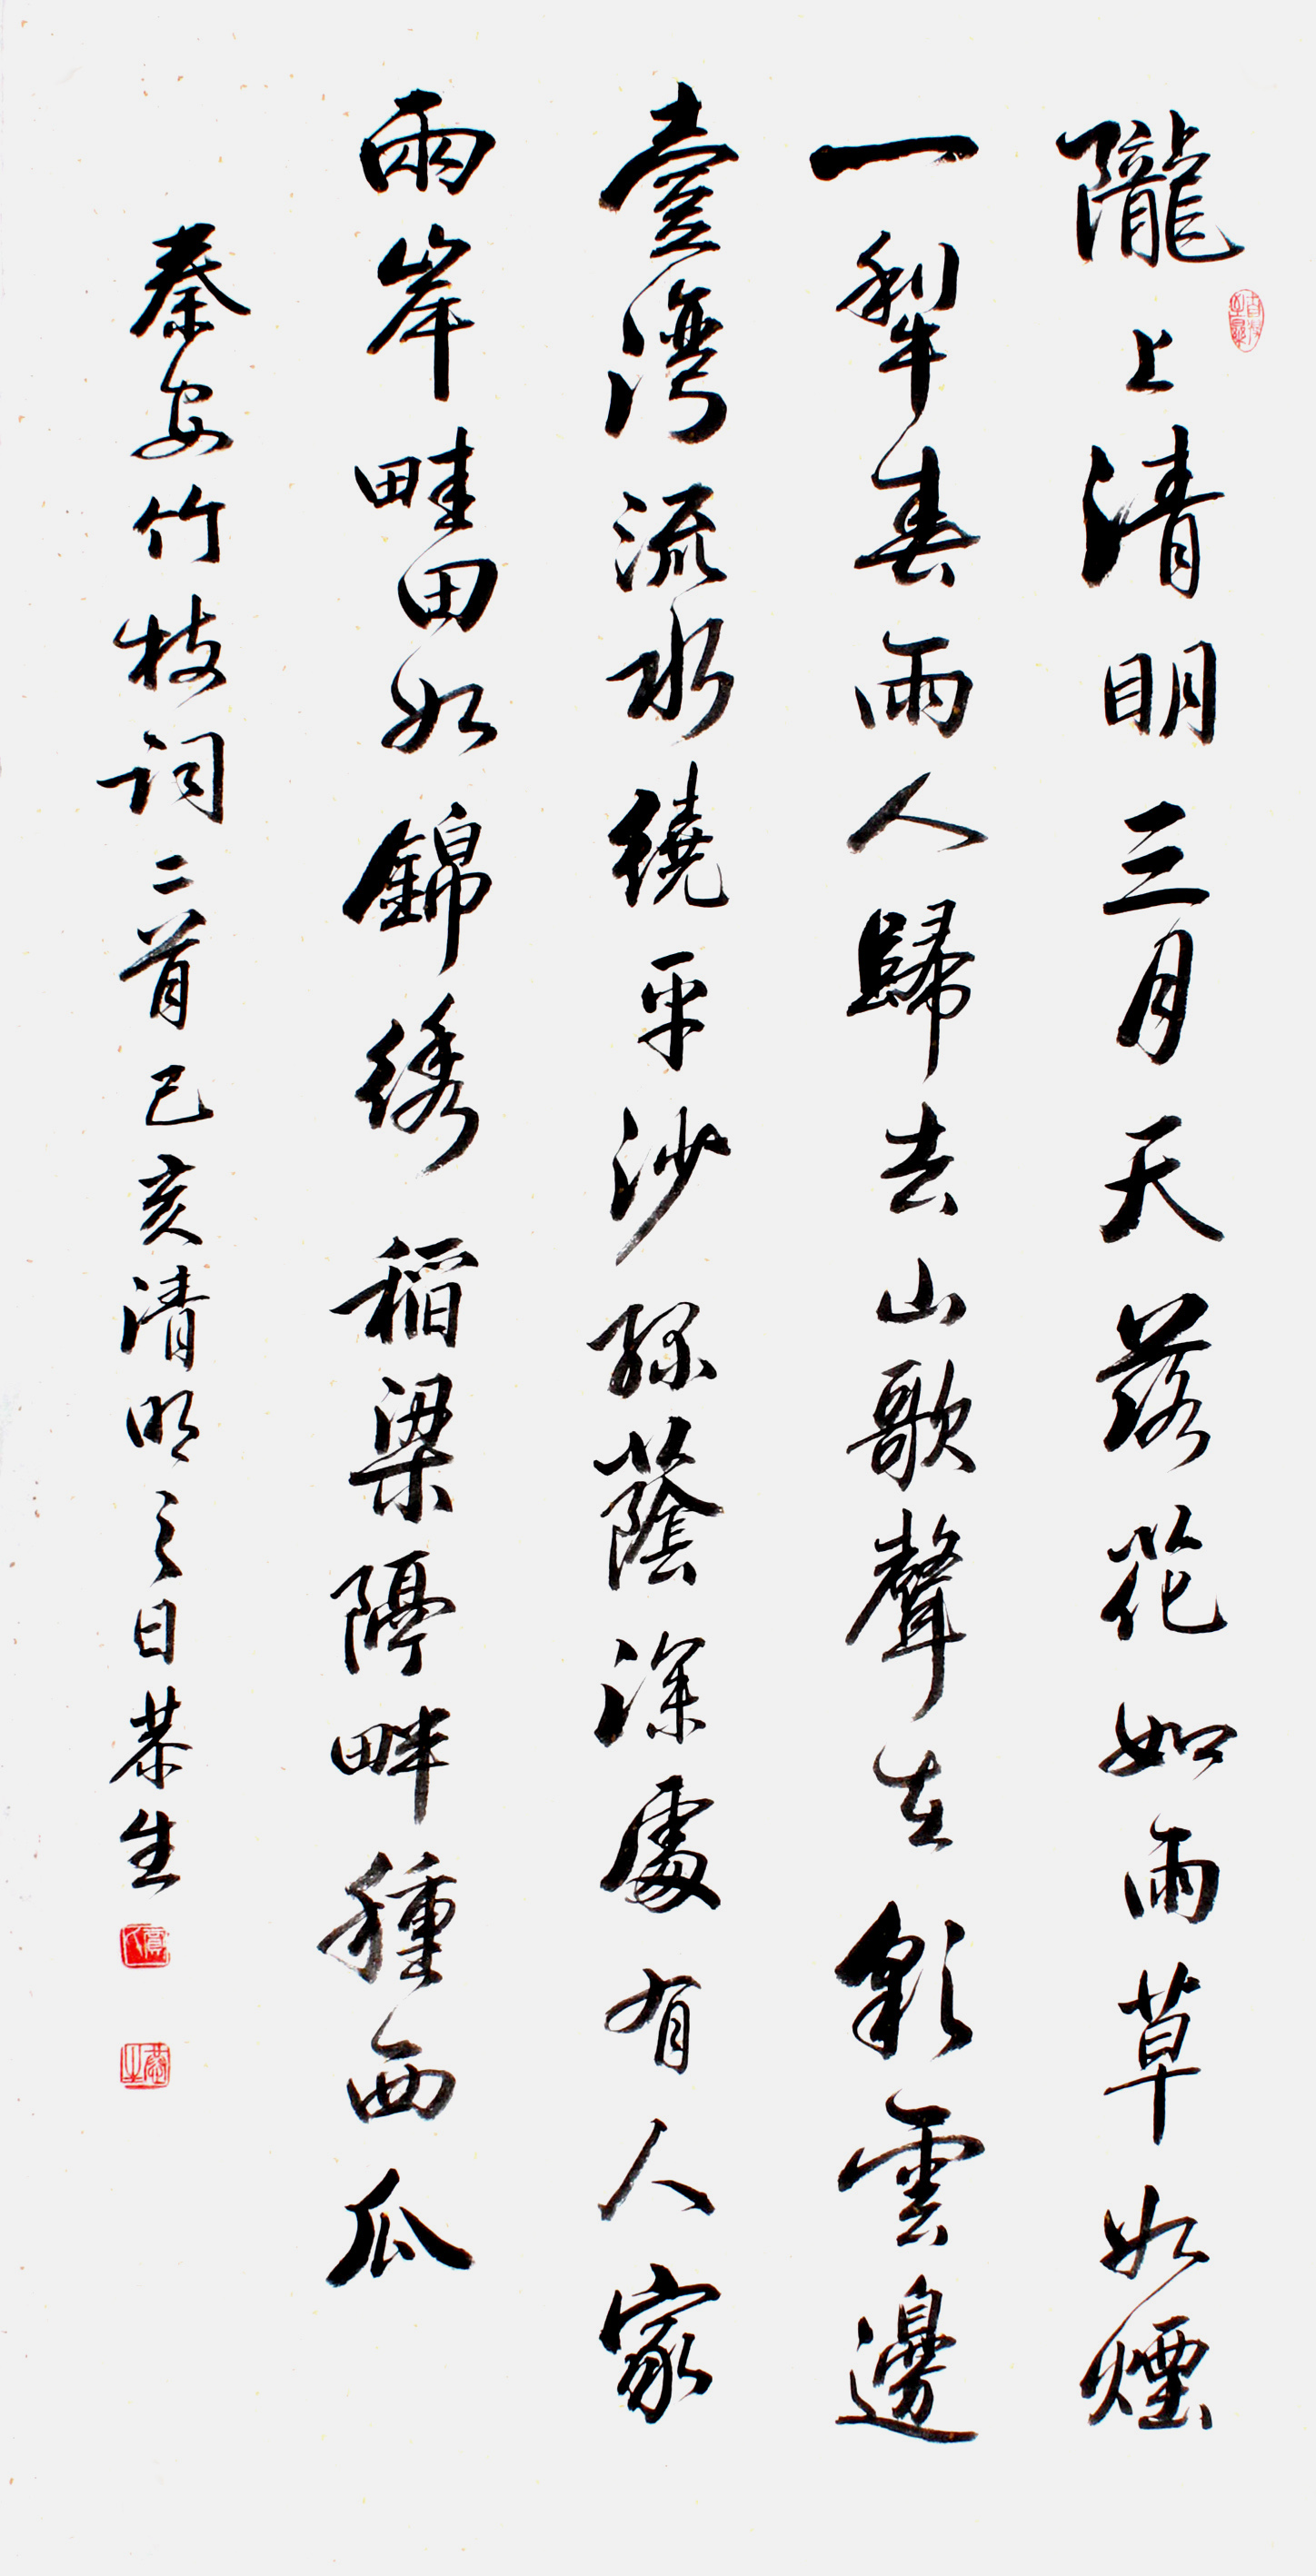 隴上清明三月天落花如雨草如煙
一犂春雨人歸去山歌聲在彩雲邊
臺灣流水繞平沙綠蔭深處有人家
兩岸畦田如錦綉稻粱隔畔種西瓜
秦安竹枝词二首己亥清明之日恭生